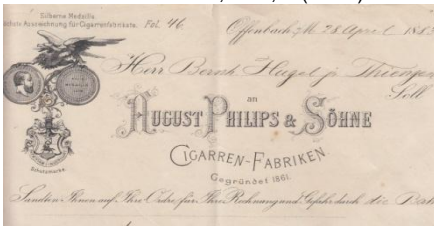 Silberne Medaille.
Auszeichnung für Cigarrenfabrikate.
Fol. 46
Offenbach a/M 28 April 188
Herr Bernh. Hugel jr
Soll
an
AUGUST PHILIPS & SÖHNE
CIGARREN-FABRIKEN
Gegründet 1861.
Schutzmarke.
Sandten Ihnen auf Ihre Ordre, für Ihre Rechnung und Gefahr durch die